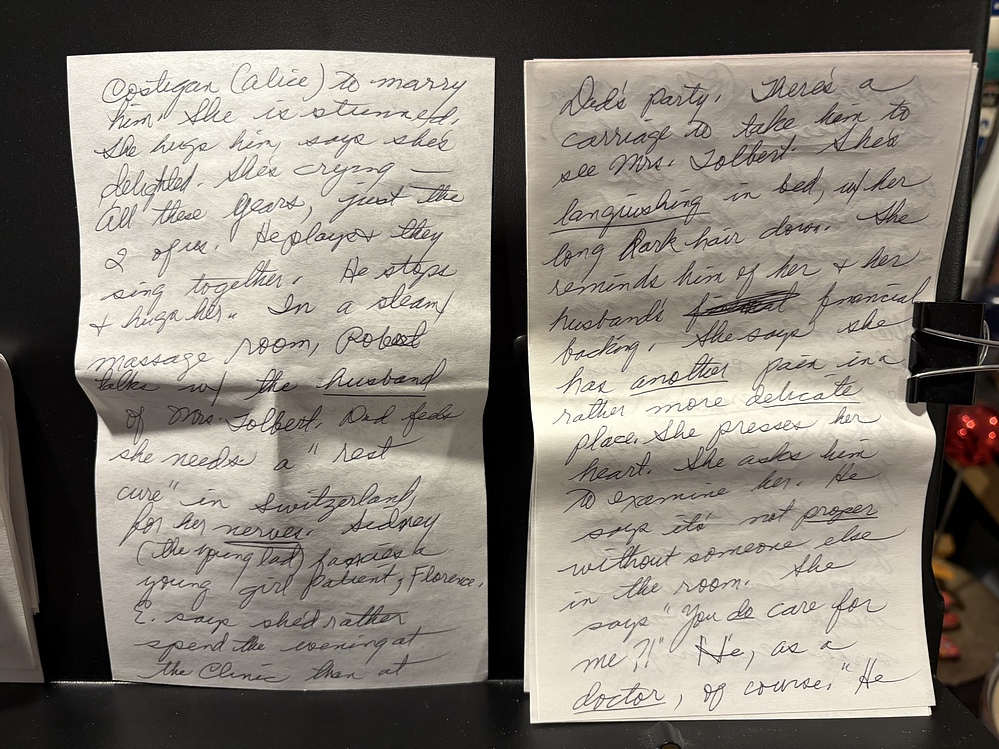 Costigan (Alice) to marry
him. She is stunned.
She hugs him, says she's
delighted. She's crying —
All these years, just the
2 of us. He plays & they
sing together. He stops
& hugs her. In a steam/
massage room, Robert
talks w/ the husband
of Mrs. Tolbert. Dad feels
she needs a "rest
cure" in Switzerland,
for her nerves. Sidney
(the young lad) fancies a
young girl patient, Florence.
E. says she'd rather
spend the evening at
the Clinic than at
Dad's party. There's a
carriage to take him to
see Mrs. Tolbert. She's
languishing in bed, w/ her
long dark hair down. She
reminds him of her & her
husband's financial
backing. She says she
has another pain in a
rather more delicate
place. She presses her
heart. She asks him
to examine her. He
says it's not proper
without someone else
in the room. She
says "You do care for
me?!" He, as a
doctor, of course." He